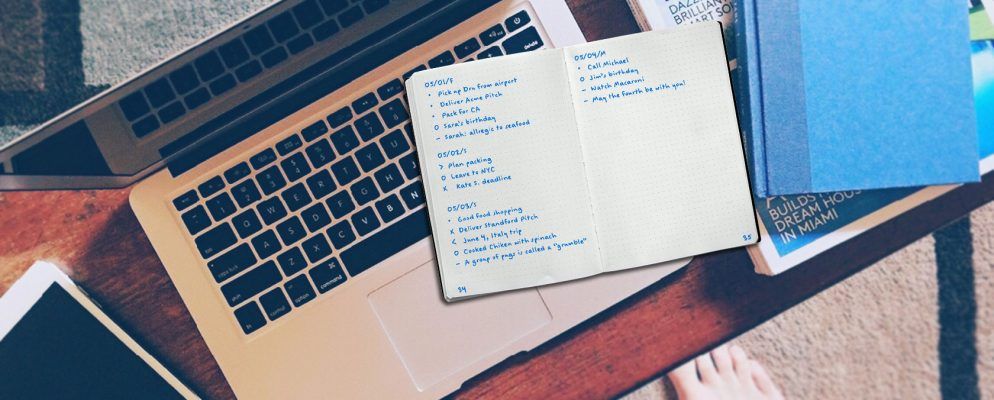 05/01/F
• Pick up Dru from airport
• Deliver Acme Pitch
• Pack for CA
O Sara's birthday
– Sarah: allregic to seafood
05/02/S
> Plan packing
O Leave to NYC
x Kate S. deadline
05/03/S
• Good food shopping
x Deliver Standford Pitch
< June 4, Italy trip
O Cooked Chiken with spinach
– A group of pugs is called a "grumble"
34
05/04/M
• Call Michael
O Jim's birthday
– Watch Macaroni
– May the fourth be with you!
35
DAZZ
BRILLIAN
SMART SO
BUILDS
DREAM HOUS
IN MIAMI
delete
Q W E R T Y U
A S D F G H J
Z X C V B N
caps lock
shift
fn control option command